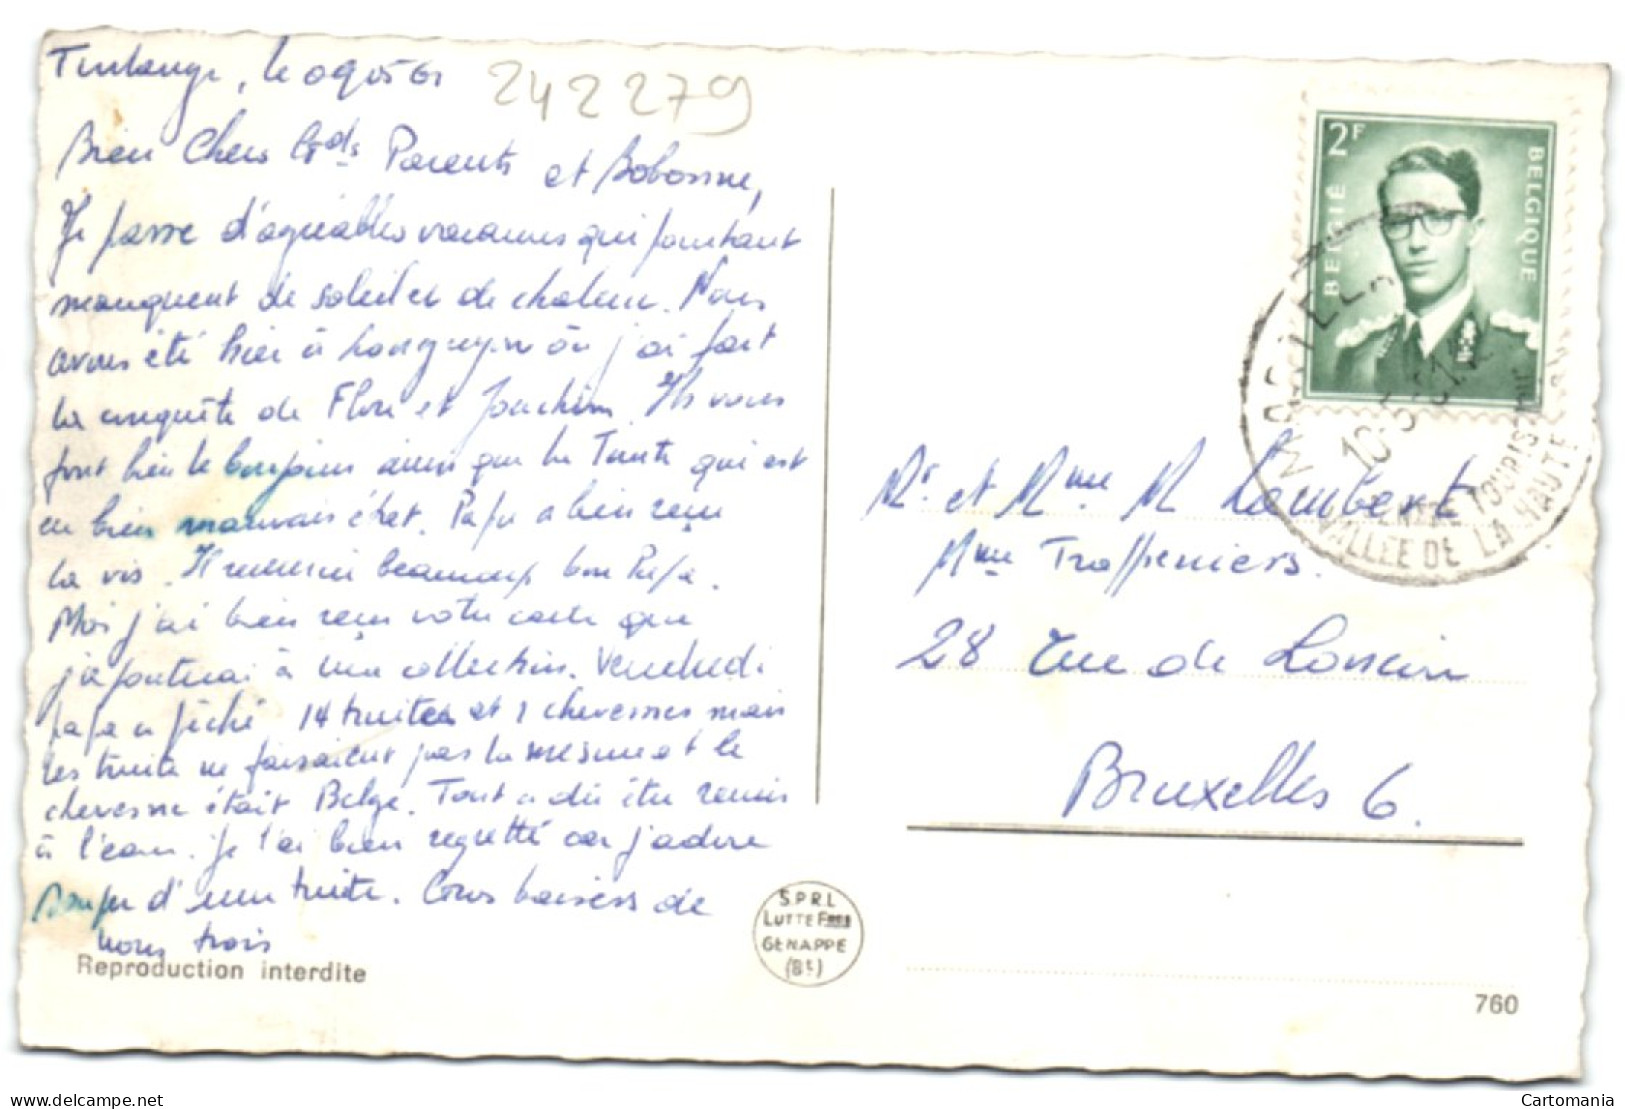 Tintange, le 090561
242279
Bien Chers Gds Parents et Bobonne,
Je passe d'agréables vacances qui pourtant
manquent de soleil et de chaleur. Nous
avons été hier à Longuyon où j'ai fait
la conquête de Flore et Joachim. Ils vous
font bien le bonjour ainsi que la Tante qui est
en bien mauvais état. Papa a bien reçu
la vis. Il remercie beaucoup bon Papa.
Moi j'ai bien reçu votre carte que
j'ajouterai à ma collection. Vendredi
papa a pêché 14 truites et 1 chevesnes mais
les truites ne faisaient pas la mesure et le
chevesne était Belge. Tout a dû être remis
à l'eau. Je l'ai bien regretté car j'adore
souper d'une truite. Gros baisers de
nous trois
Reproduction interdite
S.P.R.L
LUTTE FRES
GENAPPE
(Bt)
2F
BELGIË
BELGIQUE
MARTELANGE
10-5-61
CENTRE TOURIST
VALLEE DE LA HAUTE
Mr. et Mme M Lambert
Mme Troffeniers.
28 rue de Lossein
Bruxelles 6.
760
Cartomania
delcampe.net